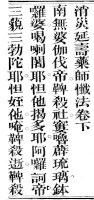 消災延壽藥師懺法卷下
南無婆伽伐帝鞞殺社寠嚕薜琉璃鉢
羅婆喝囉闍耶怛他揭多耶阿囉訶帝
三藐三勃陀耶怛姪他唵鞞殺逝鞞殺